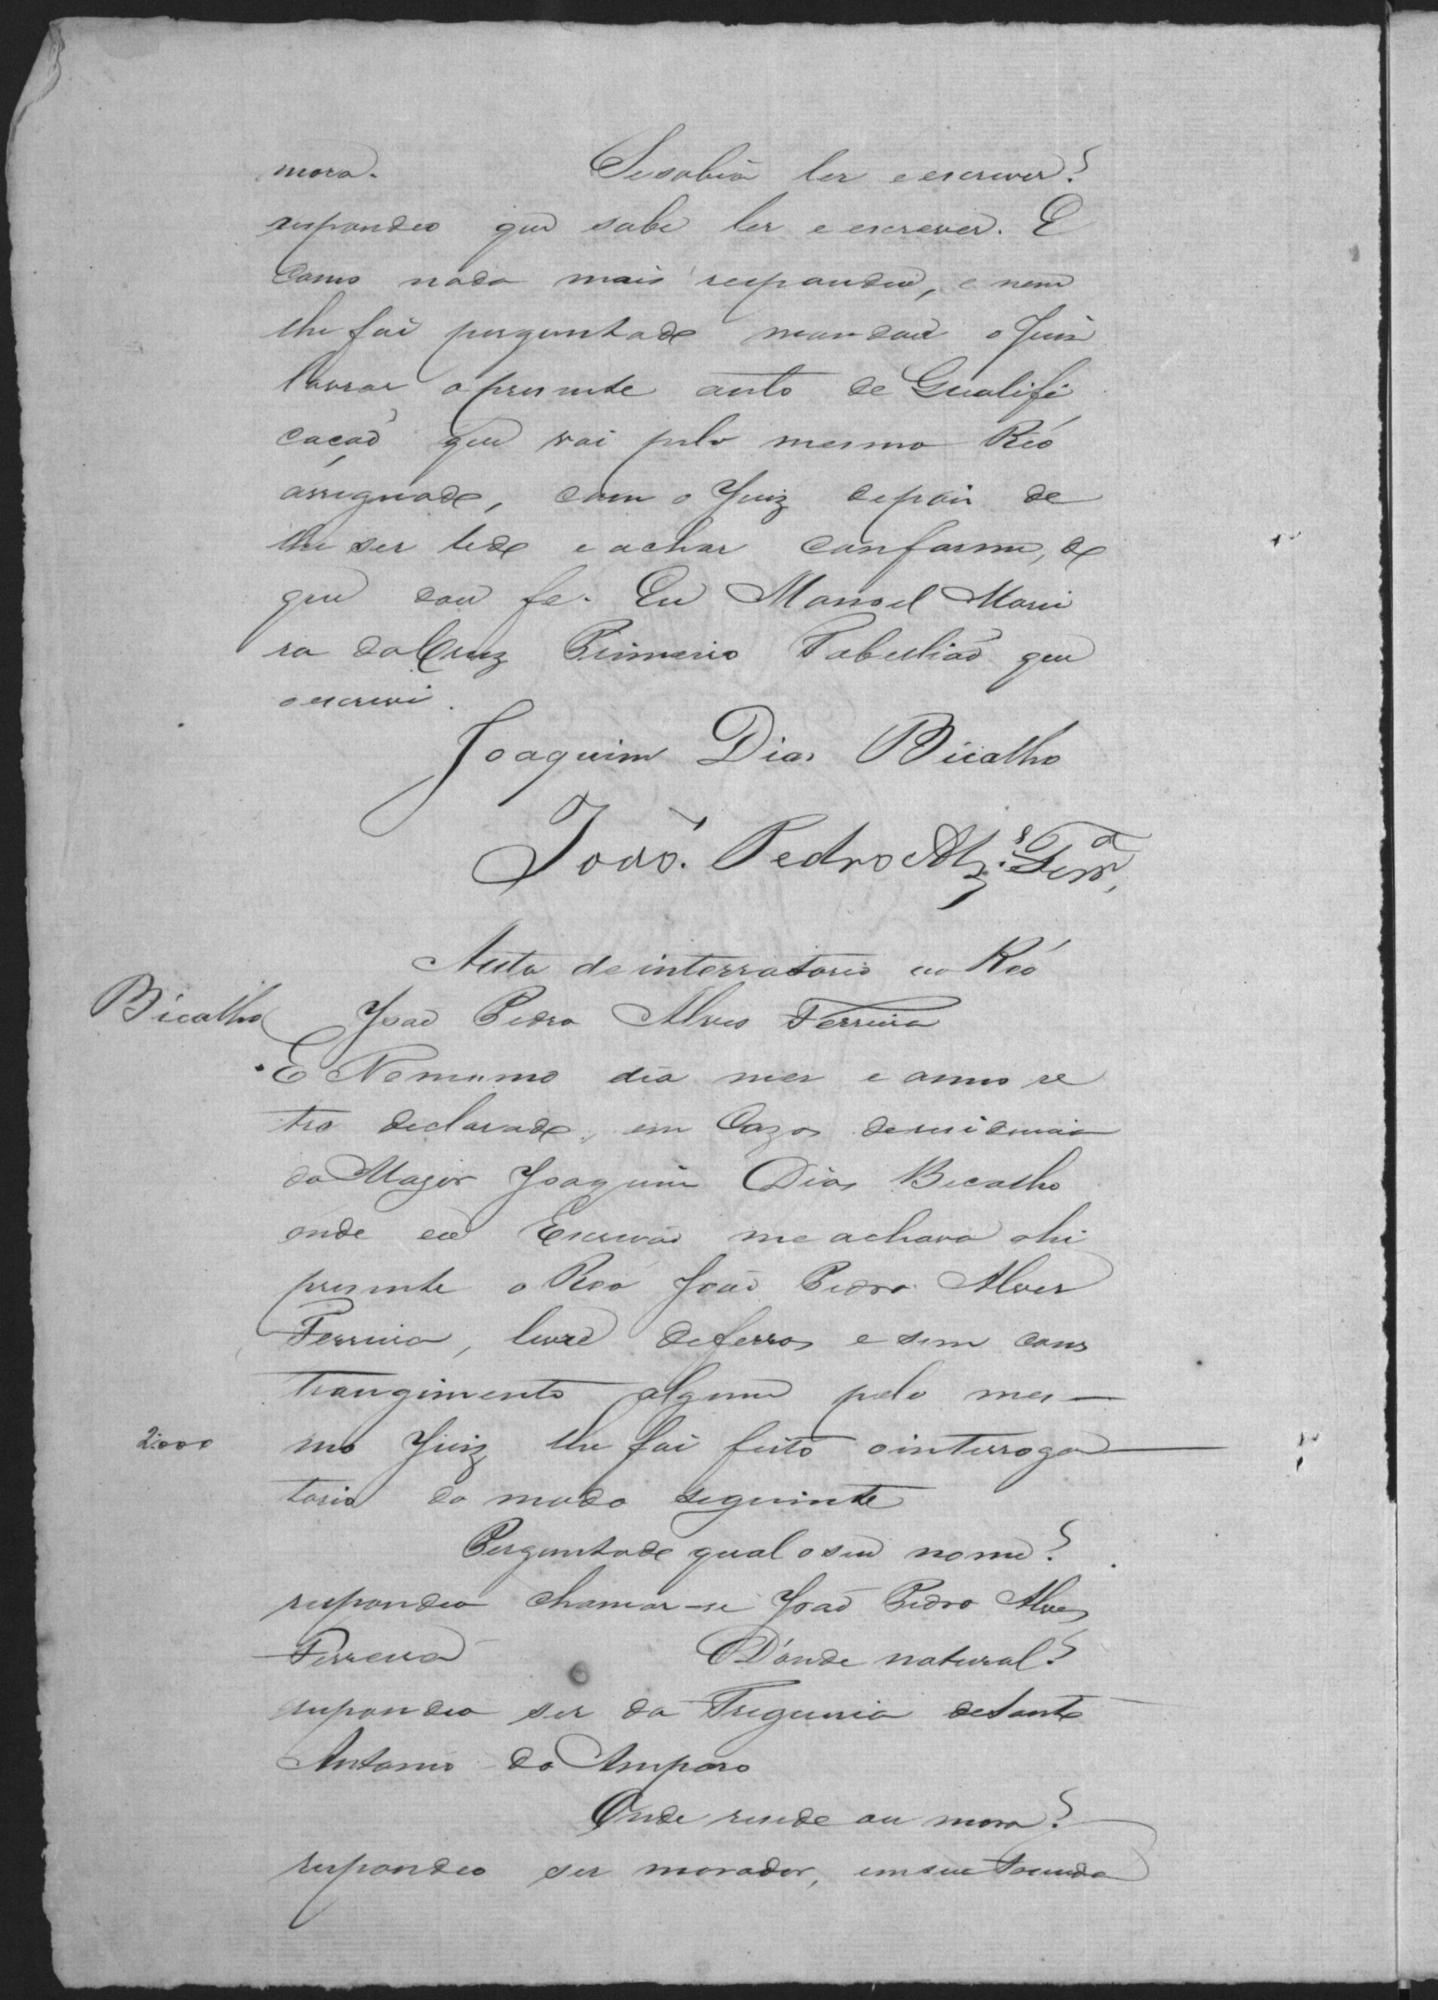 mora. Se sabia ler e escrever?
respondeo que sabe ler e escrever. E
como nada mais respondeu, e nem
lhe foi perguntado mandou o Juis
lavrar o presente auto de Qualifi
cação que vai pelo mesmo Réo
assignado, com o Juiz depois de
lhe ser lido e achar conforme, do
que dou fe. Eu Manoel Morei
ra da Cruz Primeiro Tabelião que
o escrevi.
Joaquim Dias Bicalho
João Pedro Alz.s Ferr.a
Auto de interratorio ao Réo
Bicalho João Pedro Alves Ferreira
E No mesmo dia mes e anno re
tro declarado, em Cazas de residencia
do Major Joaquim Dias Bicalho
onde eu Escrivão me achava ahi
presente o Reo João Pedro Alves
Ferreira, livre de ferros e sem cons
trangimento algum pelo mes-
2000 mo Juiz lhe foi feito o interroga
torio do modo seguinte
Perguntado qual o seu nome?
respondeo chamar-se João Pedro Alves
Ferreira D'onde natural?
respondeo ser da Freguesia de Santo
Antonio do Amparo
Onde reside ou mora?
respondeo ser morador, em sua